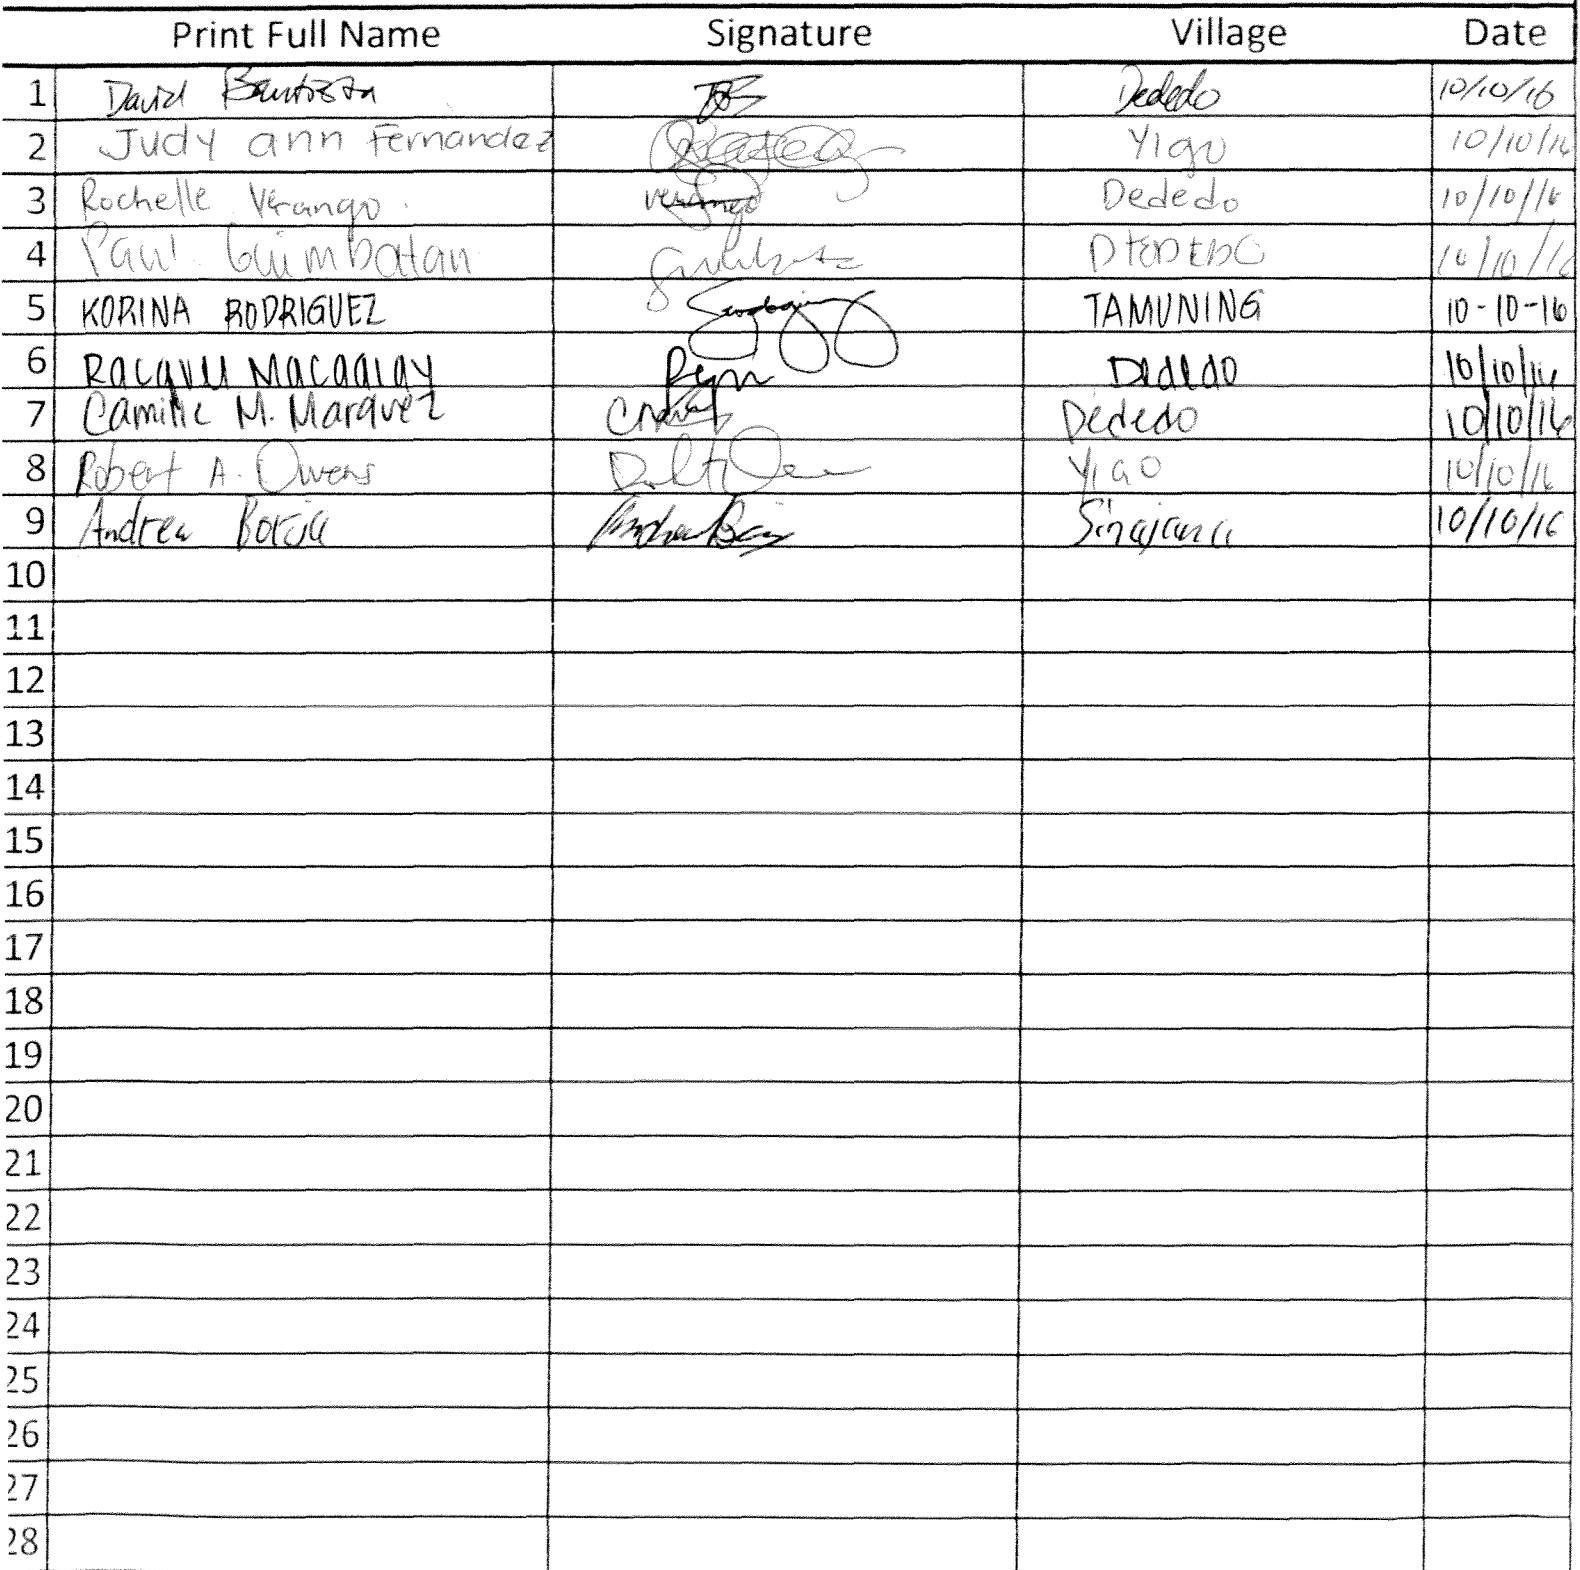 Print Full Name Signature Village Date
1 David Bautista Dededo 10/10/16
2 Judy ann Fernandez Yigo 10/10/16
3 Rochelle Verango Verango Dededo 10/10/16
4 Paul Guimbatan DEDEDO 10/10/16
5 KORINA RODRIGUEZ TAMUNING 10-10-16
6 Racquel Macaalay Dededo 10/10/16
7 Camille M. Marquez Dededo 10/10/16
8 Robert A. Owens Yigo 10/10/16
9 Andrea Borja Sinajana 10/10/16
10
11
12
13
14
15
16
17
18
19
20
21
22
23
24
25
26
27
28